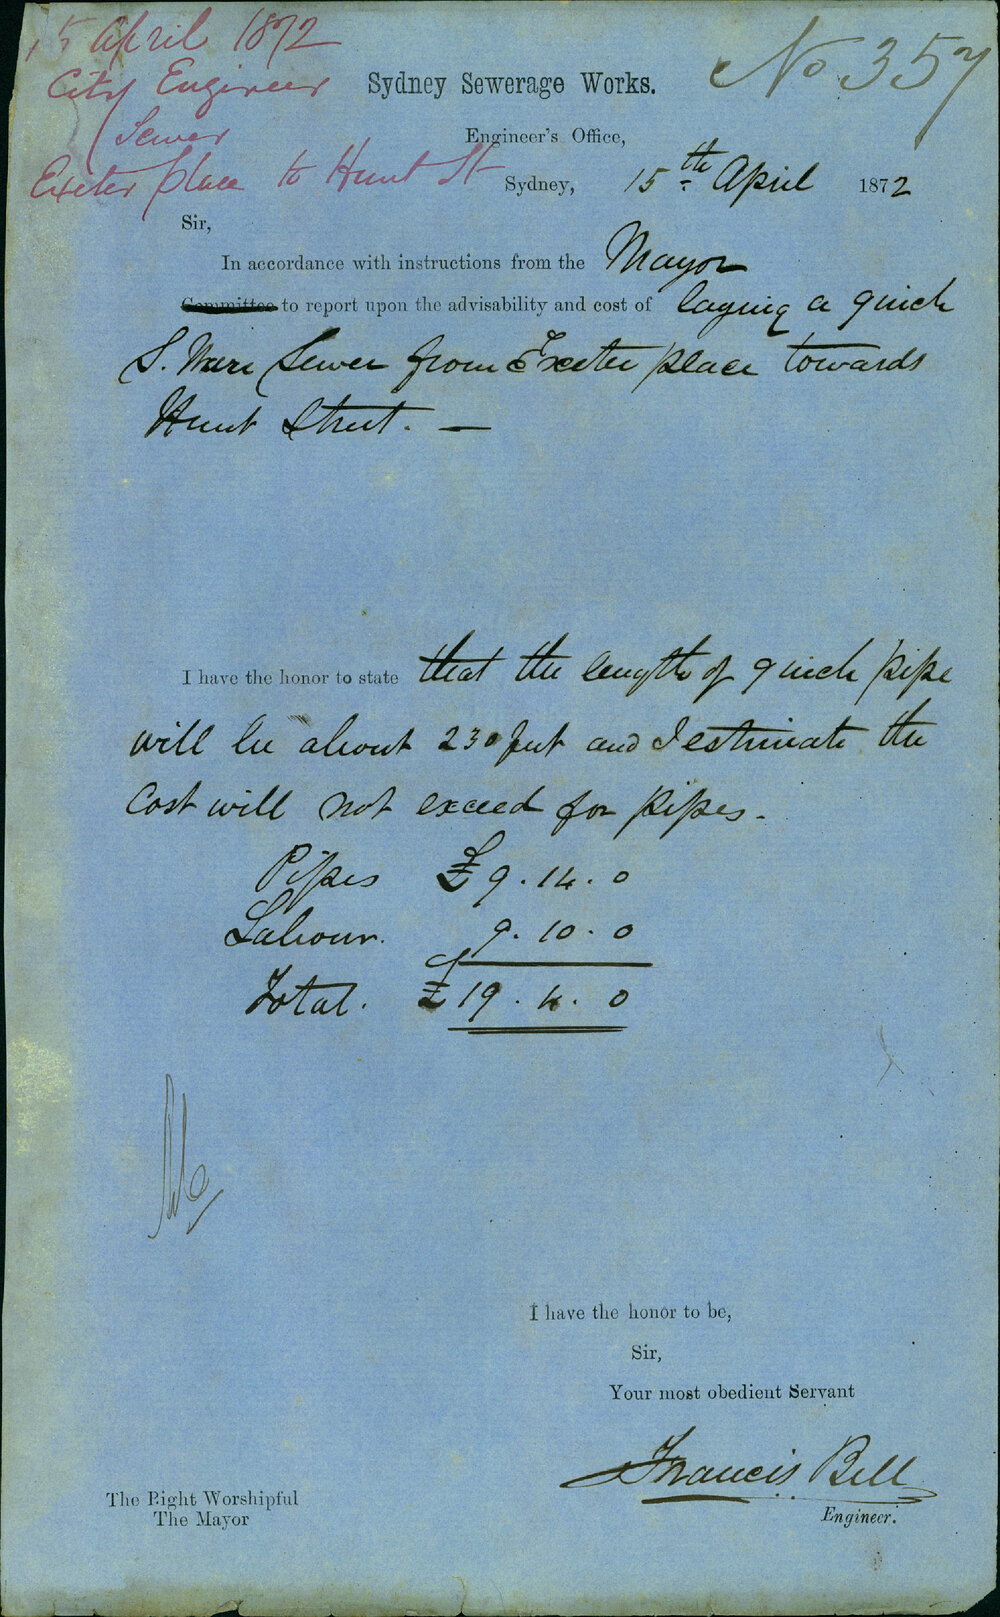 15 April 1872
City Engineer
Sewer
Exeter place to Hunt St
No 357
Sydney Sewerage Works.
Engineer's Office,
Sydney, 15th April 1872
Sir,
In accordance with instructions from the Mayor
Committee to report upon the advisability and cost of laying a 9 inch
S. Ware Sewer from Exeter place towards
Hunt Street. —
I have the honor to state that the length of 9 inch pipe
will be about 230 feet and I estimate the
Cost will not exceed for pipes.
Pipes £9.14.0
Labour. 9.10.0
Total. £19.4.0
I have the honor to be,
Sir,
Your most obedient Servant
Francis Bell
Engineer.
The Right Worshipful
The Mayor